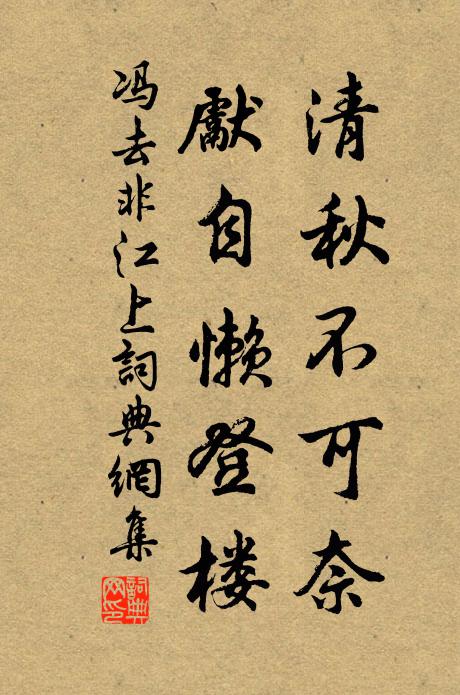 清秋不可奈
獻自懶登楼
冯去非江上詞典網集
詞典
网印